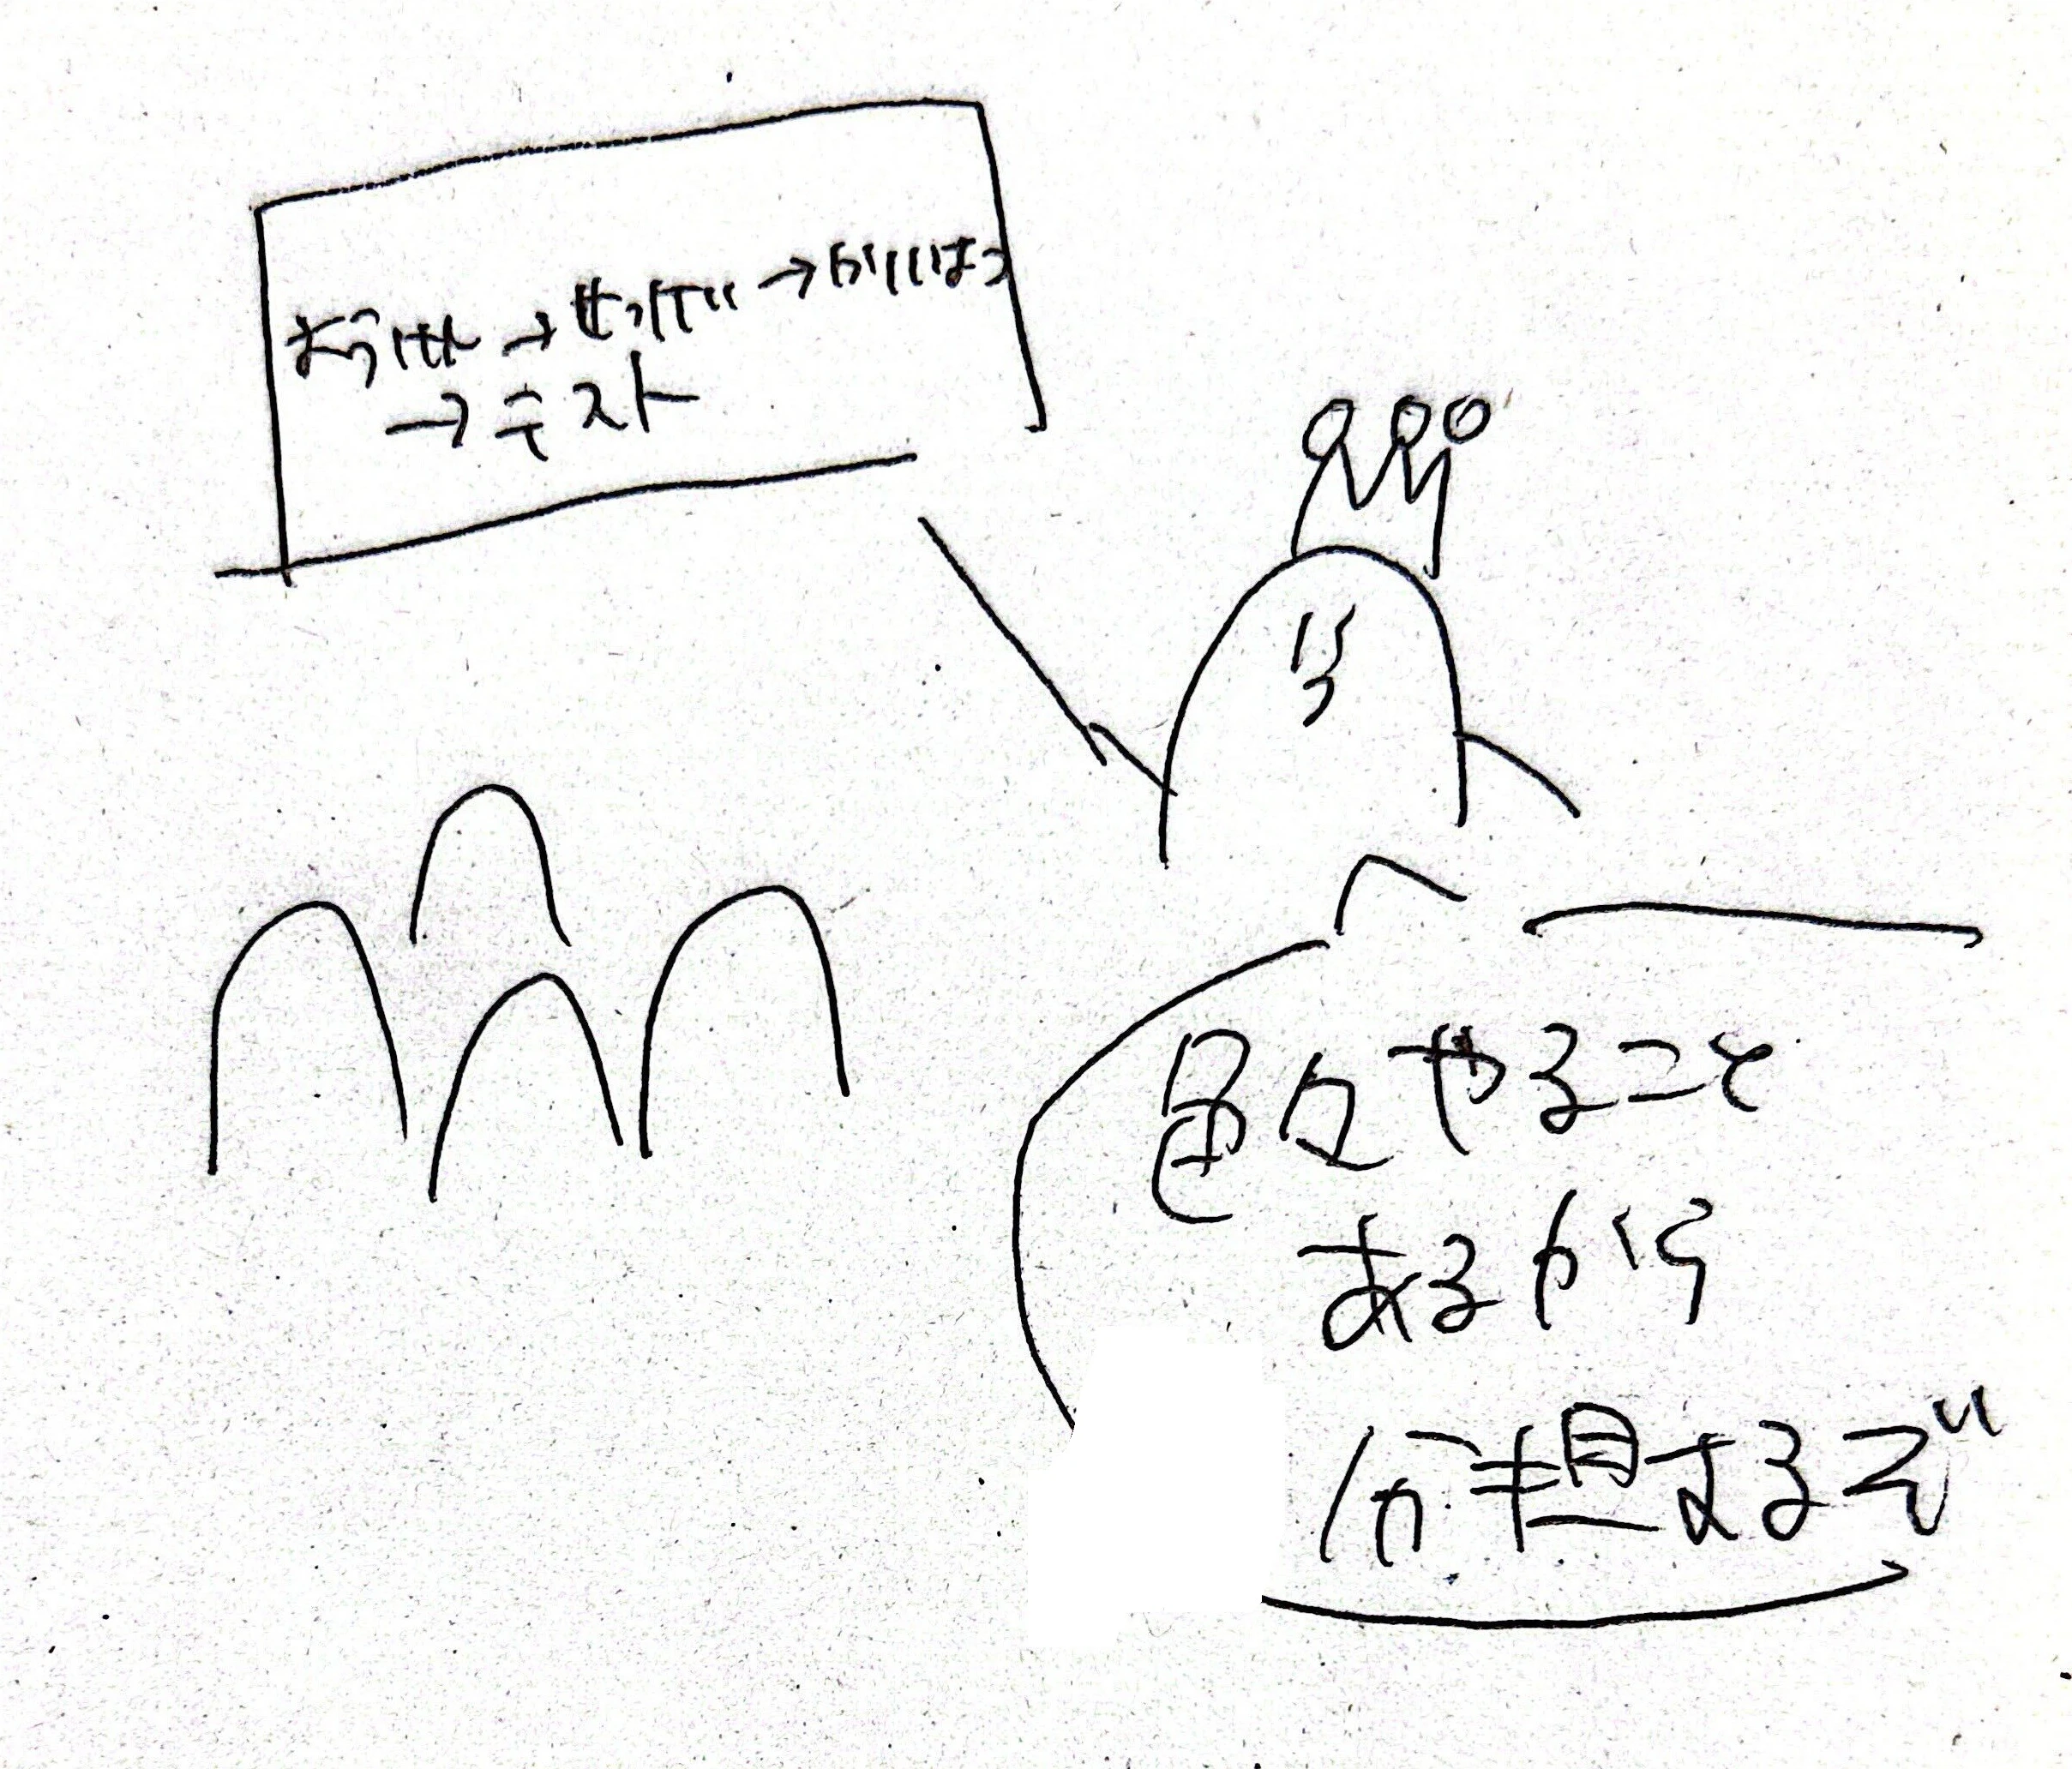 ようけん→せっけい→かいはつ
→テスト
色々やること
あるから
分担するぞ